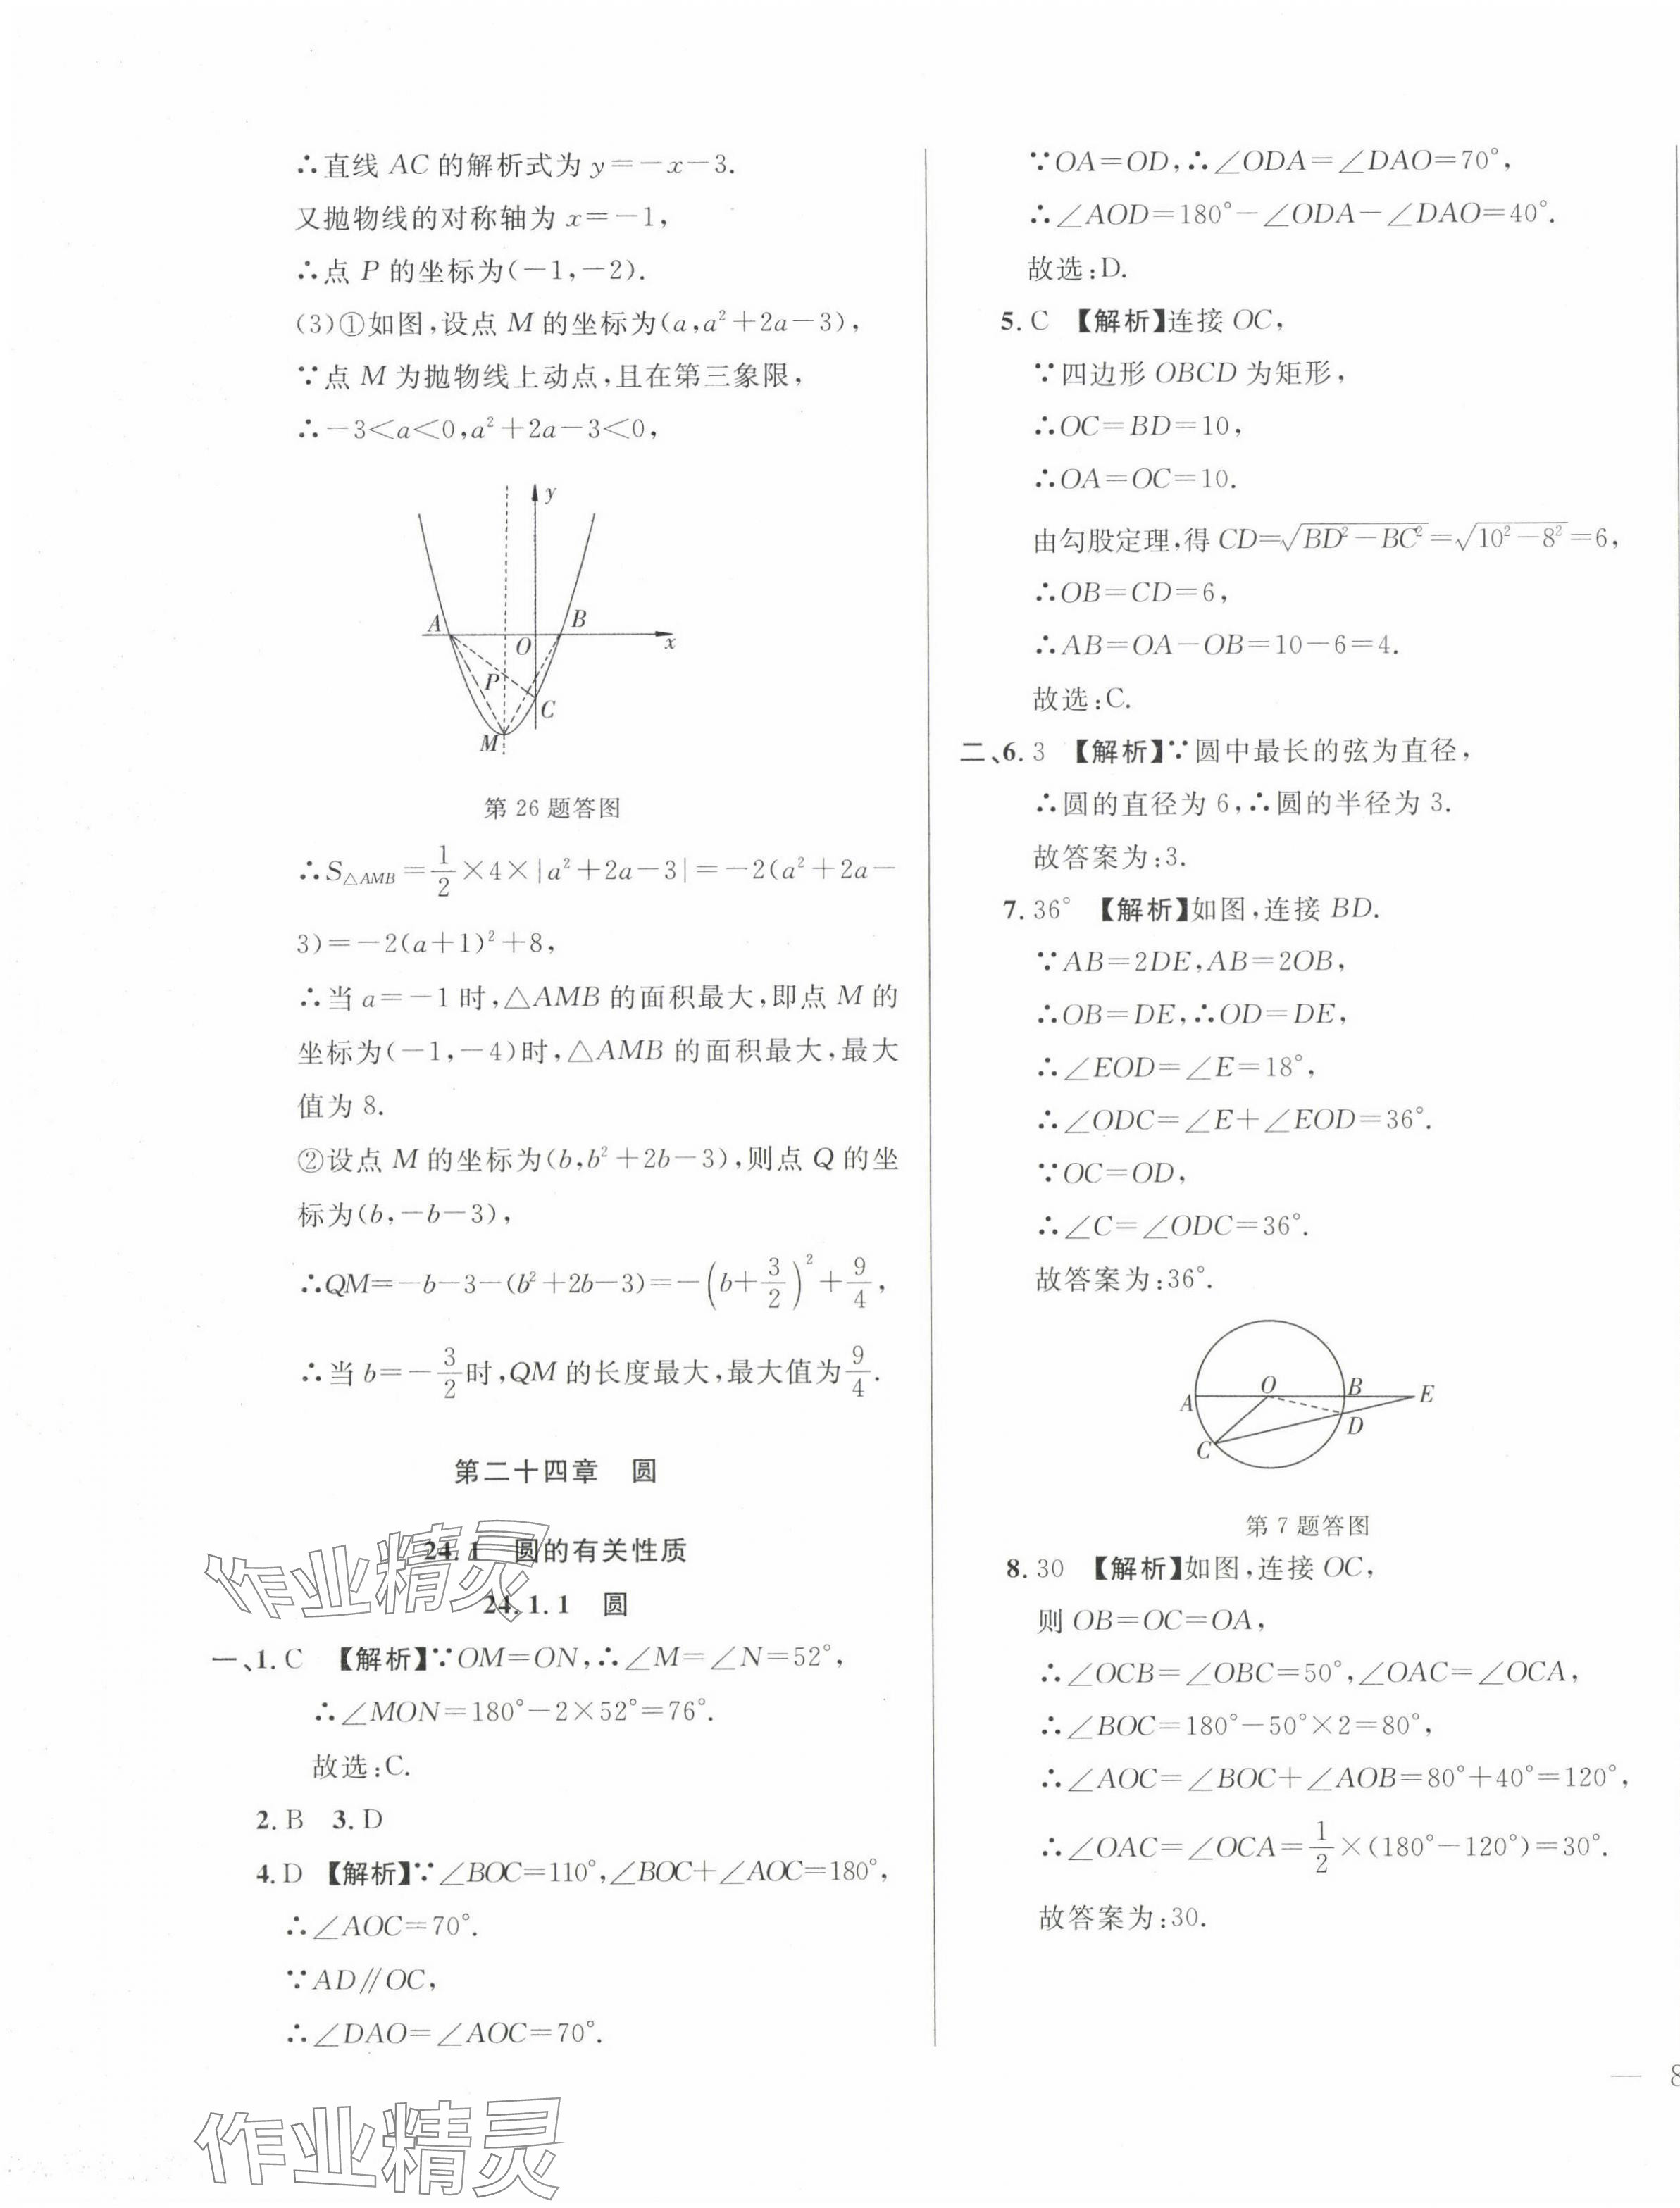 ∴直线 AC 的解析式为 y=-x-3.
又抛物线的对称轴为 x=-1,
∴点 P 的坐标为(-1,-2).
(3)①如图,设点 M 的坐标为(a,a²+2a-3),
∵点 M 为抛物线上动点,且在第三象限,
∴-3<a<0,a²+2a-3<0,
y
A
B
O
x
P
C
M
第 26 题答图
∴S△AMB=1/2×4×|a²+2a-3|=-2(a²+2a-
3)=-2(a+1)²+8,
∴当 a=-1 时,△AMB 的面积最大,即点 M 的
坐标为(-1,-4)时,△AMB 的面积最大,最大
值为 8.
②设点 M 的坐标为(b,b²+2b-3),则点 Q 的坐
标为(b,-b-3),
∴QM=-b-3-(b²+2b-3)=-(b+3/2)²+9/4,
∴当 b=-3/2时,QM 的长度最大,最大值为9/4.
第二十四章 圆
24.1 圆的有关性质
24.1.1 圆
一、1.C 【解析】∵OM=ON,∴∠M=∠N=52°,
∴∠MON=180°-2×52°=76°.
故选:C.
2.B 3.D
4.D 【解析】∵∠BOC=110°,∠BOC+∠AOC=180°,
∴∠AOC=70°.
∵AD∥OC,
∴∠DAO=∠AOC=70°.
∵OA=OD,∴∠ODA=∠DAO=70°,
∴∠AOD=180°-∠ODA-∠DAO=40°.
故选:D.
5.C 【解析】连接 OC,
∵四边形 OBCD 为矩形,
∴OC=BD=10,
∴OA=OC=10.
由勾股定理,得 CD=√(BD²-BC²)=√(10²-8²)=6,
∴OB=CD=6,
∴AB=OA-OB=10-6=4.
故选:C.
二、6.3 【解析】∵圆中最长的弦为直径,
∴圆的直径为 6,∴圆的半径为 3.
故答案为:3.
7.36° 【解析】如图,连接 BD.
∵AB=2DE,AB=2OB,
∴OB=DE,∴OD=DE,
∴∠EOD=∠E=18°,
∴∠ODC=∠E+∠EOD=36°.
∵OC=OD,
∴∠C=∠ODC=36°.
故答案为:36°.
O
B
A
E
D
C
第 7 题答图
8.30 【解析】如图,连接 OC,
则 OB=OC=OA,
∴∠OCB=∠OBC=50°,∠OAC=∠OCA,
∴∠BOC=180°-50°×2=80°,
∴∠AOC=∠BOC+∠AOB=80°+40°=120°,
∴∠OAC=∠OCA=1/2×(180°-120°)=30°.
故答案为:30.
— 8
作业精灵
作业精灵